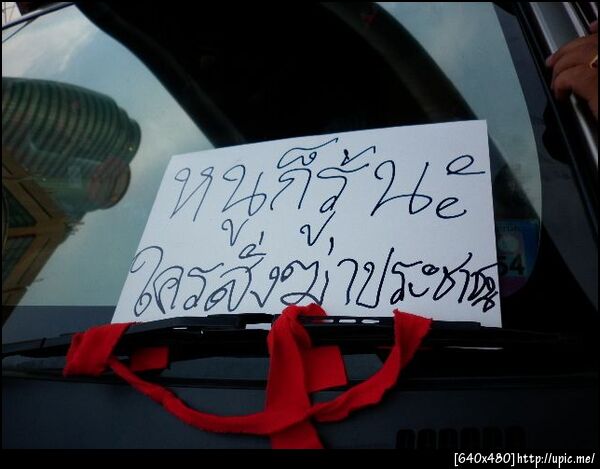 หนูก็รู้นะ
ใครสั่งฆ่าประชาชน
54
[640x480]http://upic.me/